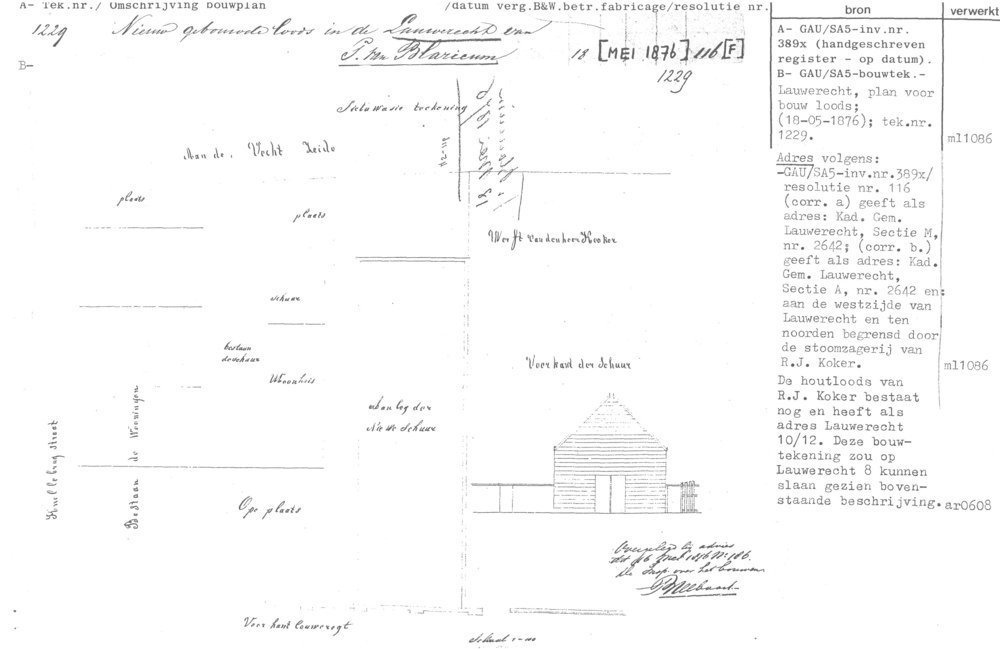 A- Tek.nr./ Omschrijving bouwplan /datum verg.B&W.betr.fabricage/resolutie nr.
bron
verwerkt
1229 Nieuw gebouwde loods in de Lauwerecht van
P. van Blaricum 18 [MEI 1876] 116 [F]
1229
B-
Situwasie teekening
Aan de Vecht Zeide
plaats
plaats
Werft van den heer Kooker
schuur
bestaan
de schuur
Woonhuis
Voorkant der Schuur
aanleg der
Niewe Schuur
Knollebrug straat
Bestaan de Wooningen
Ope plaats
Overgelegd bij advies
De Insp over het bouwen
Voorkant Louweregt
Schaal 1-100
A- GAU/SA5-inv.nr.
389x (handgeschreven
register - op datum).
B- GAU/SA5-bouwtek.-
Lauwerecht, plan voor
bouw loods;
(18-05-1876); tek.nr.
1229.
ml1086
Adres volgens:
-GAU/SA5-inv.nr.389x/
resolutie nr. 116
(corr. a) geeft als
adres: Kad. Gem.
Lauwerecht, Sectie M,
nr. 2642; (corr. b.)
geeft als adres: Kad.
Gem. Lauwerecht,
Sectie A, nr. 2642 en:
aan de westzijde van
Lauwerecht en ten
noorden begrensd door
de stoomzagerij van
R.J. Koker.
ml1086
De houtloods van
R.J. Koker bestaat
nog en heeft als
adres Lauwerecht
10/12. Deze bouw-
tekening zou op
Lauwerecht 8 kunnen
slaan gezien boven-
staande beschrijving.
ar0608